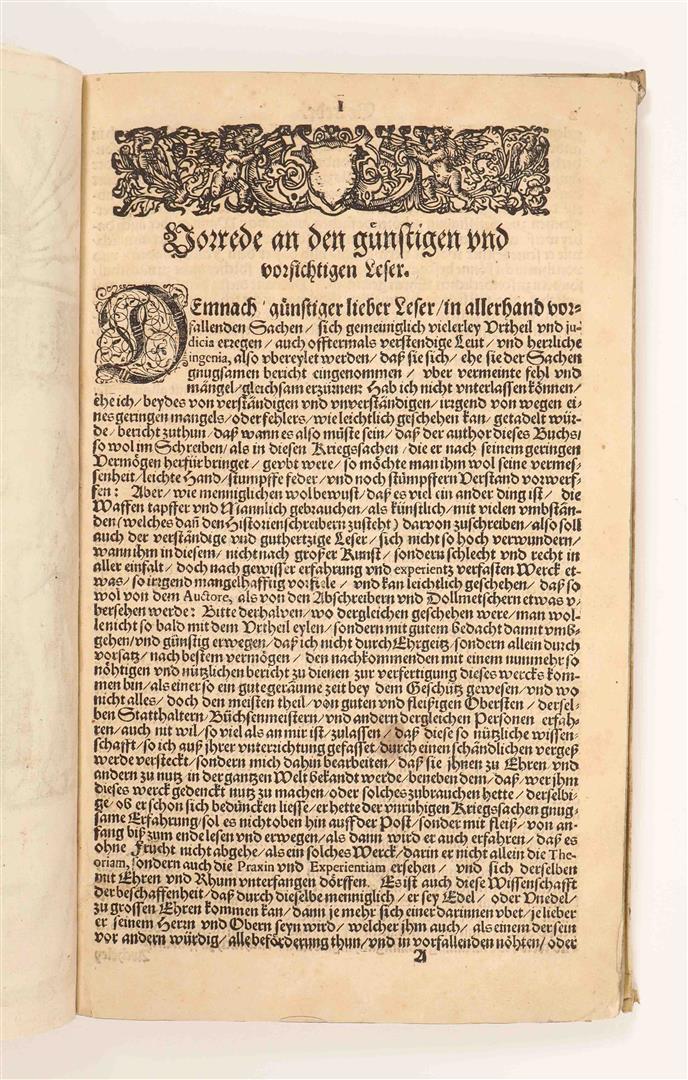 I
Vorrede an den günstigen vnd
vorsichtigen Leser.
DEmnach günstiger lieber Leser/ in allerhand vor-
fallenden Sachen/ sich gemeiniglich vielerley Vrtheil vnd ju-
dicia erregen/ auch offtermals verstendige Leut/ vnd herrliche
ingenia, also vbereylet werden/ daß sie sich/ ehe sie der Sachen
gnugsamen bericht eingenommen/ vber vermeinte fehl vnd
mängel/ gleichsam erzürnen: Hab ich nicht vnterlassen können/
ehe ich/ beydes von verständigen vnd vnverständigen/ irgend von wegen ei-
nes geringen mangels/ oder fehlers/ wie leichtlich geschehen kan/ getadelt wür-
de/ bericht zuthun/ daß wann es also müste sein/ daß der author dieses Buchs/
so wol im Schreiben/ als in diesen Kriegssachen/ die er nach seinem geringen
Vermögen herfür bringet/ gevbt were/ so möchte man ihm wol seine vermes-
senheit/ leichte Hand/ stumpffe feder/ vnd noch stümpffern Verstand vorwerf-
fen: Aber/ wie menniglichen wol bewust/ daß es viel ein ander ding ist/ die
Waffen tapffer vnd Männlich gebrauchen/ als künstlich/ mit vielen vmbstän-
den (welches dañ den Historienschreibern zusteht) darvon zuschreiben/ also soll
auch der verständige vnd guthertzige Leser/ sich nicht so hoch verwundern/
wann ihm in diesem/ nicht nach großer Kunst/ sondern schlecht vnd recht in
aller einfalt/ doch nach gewisser erfahrung vnd experientz verfasten Werck et-
was/ so irgend mangelhafftig vorfiele/ vnd kan leichtlich geschehen/ daß so
wol von dem Auctore, als von den Abschreibern vnd Dollmetschern etwas v-
bersehen werde: Bitte derhalven/ wo dergleichen geschehen were/ man wol-
le nicht so bald mit dem Vrtheil eylen/ sondern mit gutem bedacht damit vmb-
gehen/ vnd günstig erwegen/ daß ich nicht durch Ehrgeitz/ sondern allein durch
vorsatz/ nach bestem vermögen/ den nachkommenden mit einem nunmehr so
nöhtigen vnd nützlichen bericht zu dienen zur verfertigung dieses wercks kom-
men bin/ als einer so ein gute geräume zeit bey dem Geschütz gewesen/ vnd wo
nicht alles/ doch den meisten theil/ von guten vnd fleißigen Obersten/ dersel-
ben Statthaltern/ Büchsenmeistern/ vnd andern dergleichen Personen erfah-
ren/ auch nit wil/ so viel als an mir ist/ zulassen/ daß diese so nützliche wissen-
schafft/ so ich auß ihrer vnterrichtung gefasset/ durch einen schändlichen vergeß
werde versteckt/ sondern mich dahin bearbeiten/ daß sie jhnen zu Ehren vnd
andern zu nutz in der gantzen Welt bekandt werde/ beneben dem/ daß/ wer jhm
dieses werck gedenckt nutz zu machen oder solches zubrauchen hette/ derselbi-
ge/ ob er schon sich bedüncken liesse/ er hette der vnruhigen Kriegssachen gnug-
same Erfahrung/ sol es nicht oben hin auff der Post/ sonder mit fleiß/ von an-
fang biß zum ende lesen vnd erwegen/ als dann wird er auch erfahren/ daß es
ohne Frucht nicht abgehe/ als ein solches Werck/ darin er nicht allein die The-
oriam, sondern auch die Praxin vnd Experientiam ersehen/ vnd sich derselben
mit Ehren vnd Rhum vnterfangen dörffen. Es ist auch diese Wissenschafft
der beschaffenheit/ daß durch dieselbe menniglich/ er sey Edel/ oder Vnedel/
zu grossen Ehren kommen kan/ dann je mehr sich einer darinnen vbet/ je lieber
er seinem Herrn vnd Obern seyn wird/ welcher jhm auch/ als einem der sein
vor andern würdig/ alle beförderung thun/ vnd in vorfallenden nöhten/ oder
A